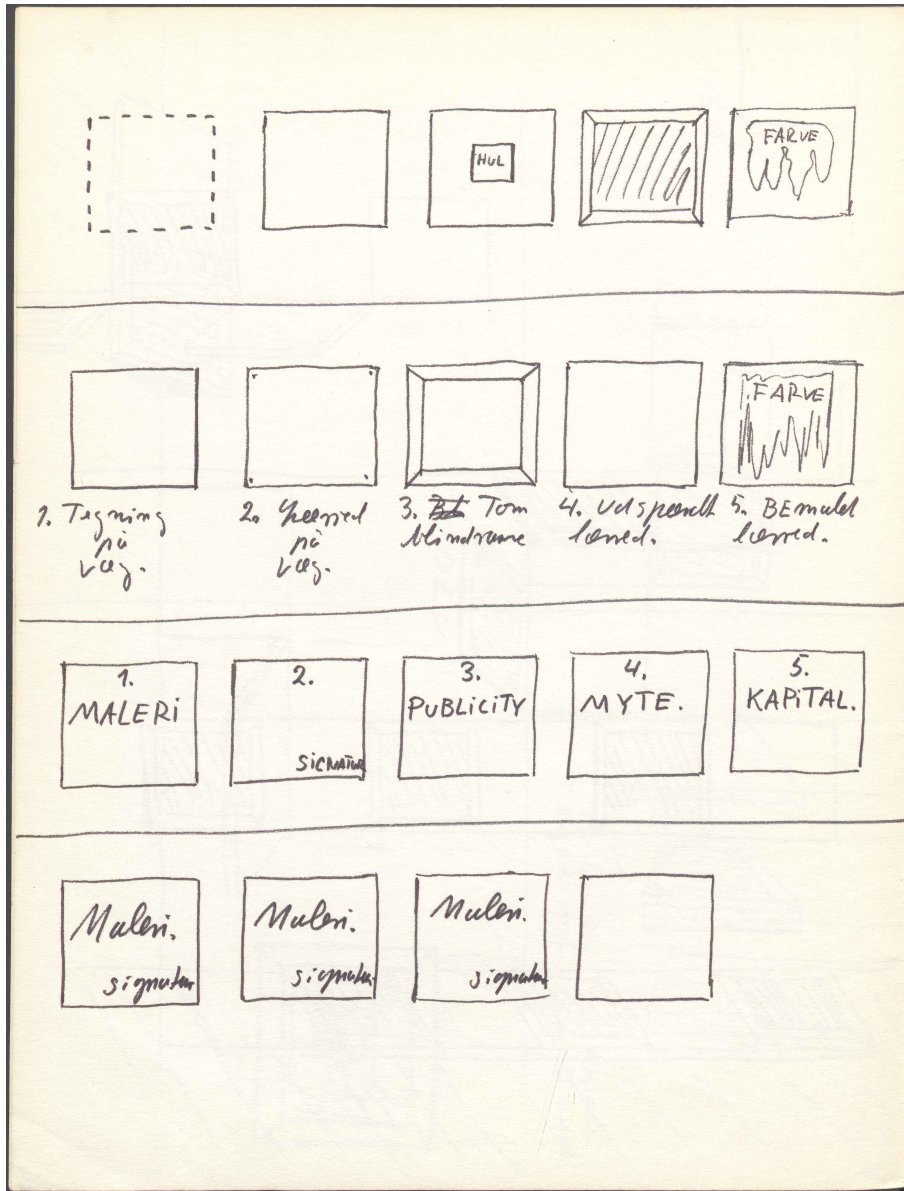 HUL
FARVE
FARVE
1. Tegning
på
væg.
2. Lærred
på
væg.
3. Tom
blindramme
4. Udspændt
lærred.
5. BEmalet
lærred.
1.
MALERI
2.
SIGNATUR
3.
PUBLICITY
4.
MYTE.
5.
KAPITAL.
Maleri.
signatur
Maleri.
signatur
Maleri.
signatur